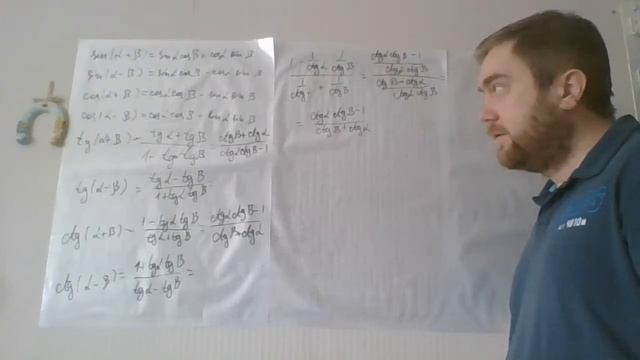 sin(α+β) = sinα cosβ + cosα sin β
sin(α-β) = sinα cosβ - cosα sin β
cos(α+β) = cosα cosβ - sinα sin β
cos(α-β) = cosα cosβ + sinα sin β
tg(α+β) = (tgα + tgβ)/(1 - tgα tgβ) = (ctgβ + ctgα)/(ctgα ctgβ - 1)
tg(α-β) = (tgα - tgβ)/(1 + tgα tgβ)
ctg(α+β) = (1 - tgα tgβ)/(tgα + tgβ) = (ctgα ctgβ - 1)/(ctgβ + ctgα)
ctg(α-β) = (1 + tgα tgβ)/(tgα - tgβ) =
(1 - 1/ctgα · 1/ctgβ)/(1/ctgα + 1/ctgβ) = ((ctgα ctgβ - 1)/(ctgα ctgβ))/((ctgβ + ctgα)/(ctgα ctgβ)) =
= (ctgα ctgβ - 1)/(ctgβ + ctgα)